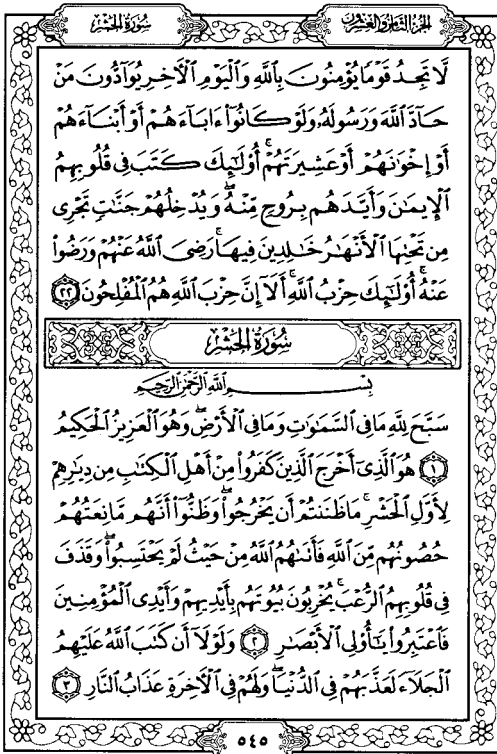 سُورَةُ الحَشْرِ الجُزْءُ الثَّامِنُ وَالعِشْرُونَ
لَّا تَجِدُ قَوْمًا يُؤْمِنُونَ بِٱللَّهِ وَٱلْيَوْمِ ٱلْأَخِرِ يُوَآدُّونَ مَنْ
حَآدَّ ٱللَّهَ وَرَسُولَهُۥ وَلَوْ كَانُوٓاْ ءَابَآءَهُمْ أَوْ أَبْنَآءَهُمْ
أَوْ إِخْوَٰنَهُمْ أَوْ عَشِيرَتَهُمْ ۚ أُوْلَٰٓئِكَ كَتَبَ فِى قُلُوبِهِمُ
ٱلْإِيمَٰنَ وَأَيَّدَهُم بِرُوحٍ مِّنْهُ ۖ وَيُدْخِلُهُمْ جَنَّٰتٍ تَجْرِى
مِن تَحْتِهَا ٱلْأَنْهَٰرُ خَٰلِدِينَ فِيهَا ۚ رَضِىَ ٱللَّهُ عَنْهُمْ وَرَضُواْ
عَنْهُ ۚ أُوْلَٰٓئِكَ حِزْبُ ٱللَّهِ ۚ أَلَآ إِنَّ حِزْبَ ٱللَّهِ هُمُ ٱلْمُفْلِحُونَ ٢٢
سُورَةُ الحَشْرِ
بِسْمِ ٱللَّهِ ٱلرَّحْمَٰنِ ٱلرَّحِيمِ
سَبَّحَ لِلَّهِ مَا فِى ٱلسَّمَٰوَٰتِ وَمَا فِى ٱلْأَرْضِ ۖ وَهُوَ ٱلْعَزِيزُ ٱلْحَكِيمُ
١ هُوَ ٱلَّذِىٓ أَخْرَجَ ٱلَّذِينَ كَفَرُواْ مِنْ أَهْلِ ٱلْكِتَٰبِ مِن دِيَٰرِهِمْ
لِأَوَّلِ ٱلْحَشْرِ ۚ مَا ظَنَنتُمْ أَن يَخْرُجُواْ ۖ وَظَنُّوٓاْ أَنَّهُم مَّانِعَتُهُمْ
حُصُونُهُم مِّنَ ٱللَّهِ فَأَتَىٰهُمُ ٱللَّهُ مِنْ حَيْثُ لَمْ يَحْتَسِبُواْ ۖ وَقَذَفَ
فِى قُلُوبِهِمُ ٱلرُّعْبَ ۚ يُخْرِبُونَ بُيُوتَهُم بِأَيْدِيهِمْ وَأَيْدِى ٱلْمُؤْمِنِينَ
فَٱعْتَبِرُواْ يَٰٓأُوْلِى ٱلْأَبْصَٰرِ ٢ وَلَوْلَآ أَن كَتَبَ ٱللَّهُ عَلَيْهِمُ
ٱلْجَلَآءَ لَعَذَّبَهُمْ فِى ٱلدُّنْيَا ۖ وَلَهُمْ فِى ٱلْأَخِرَةِ عَذَابُ ٱلنَّارِ ٣
٥٤٥